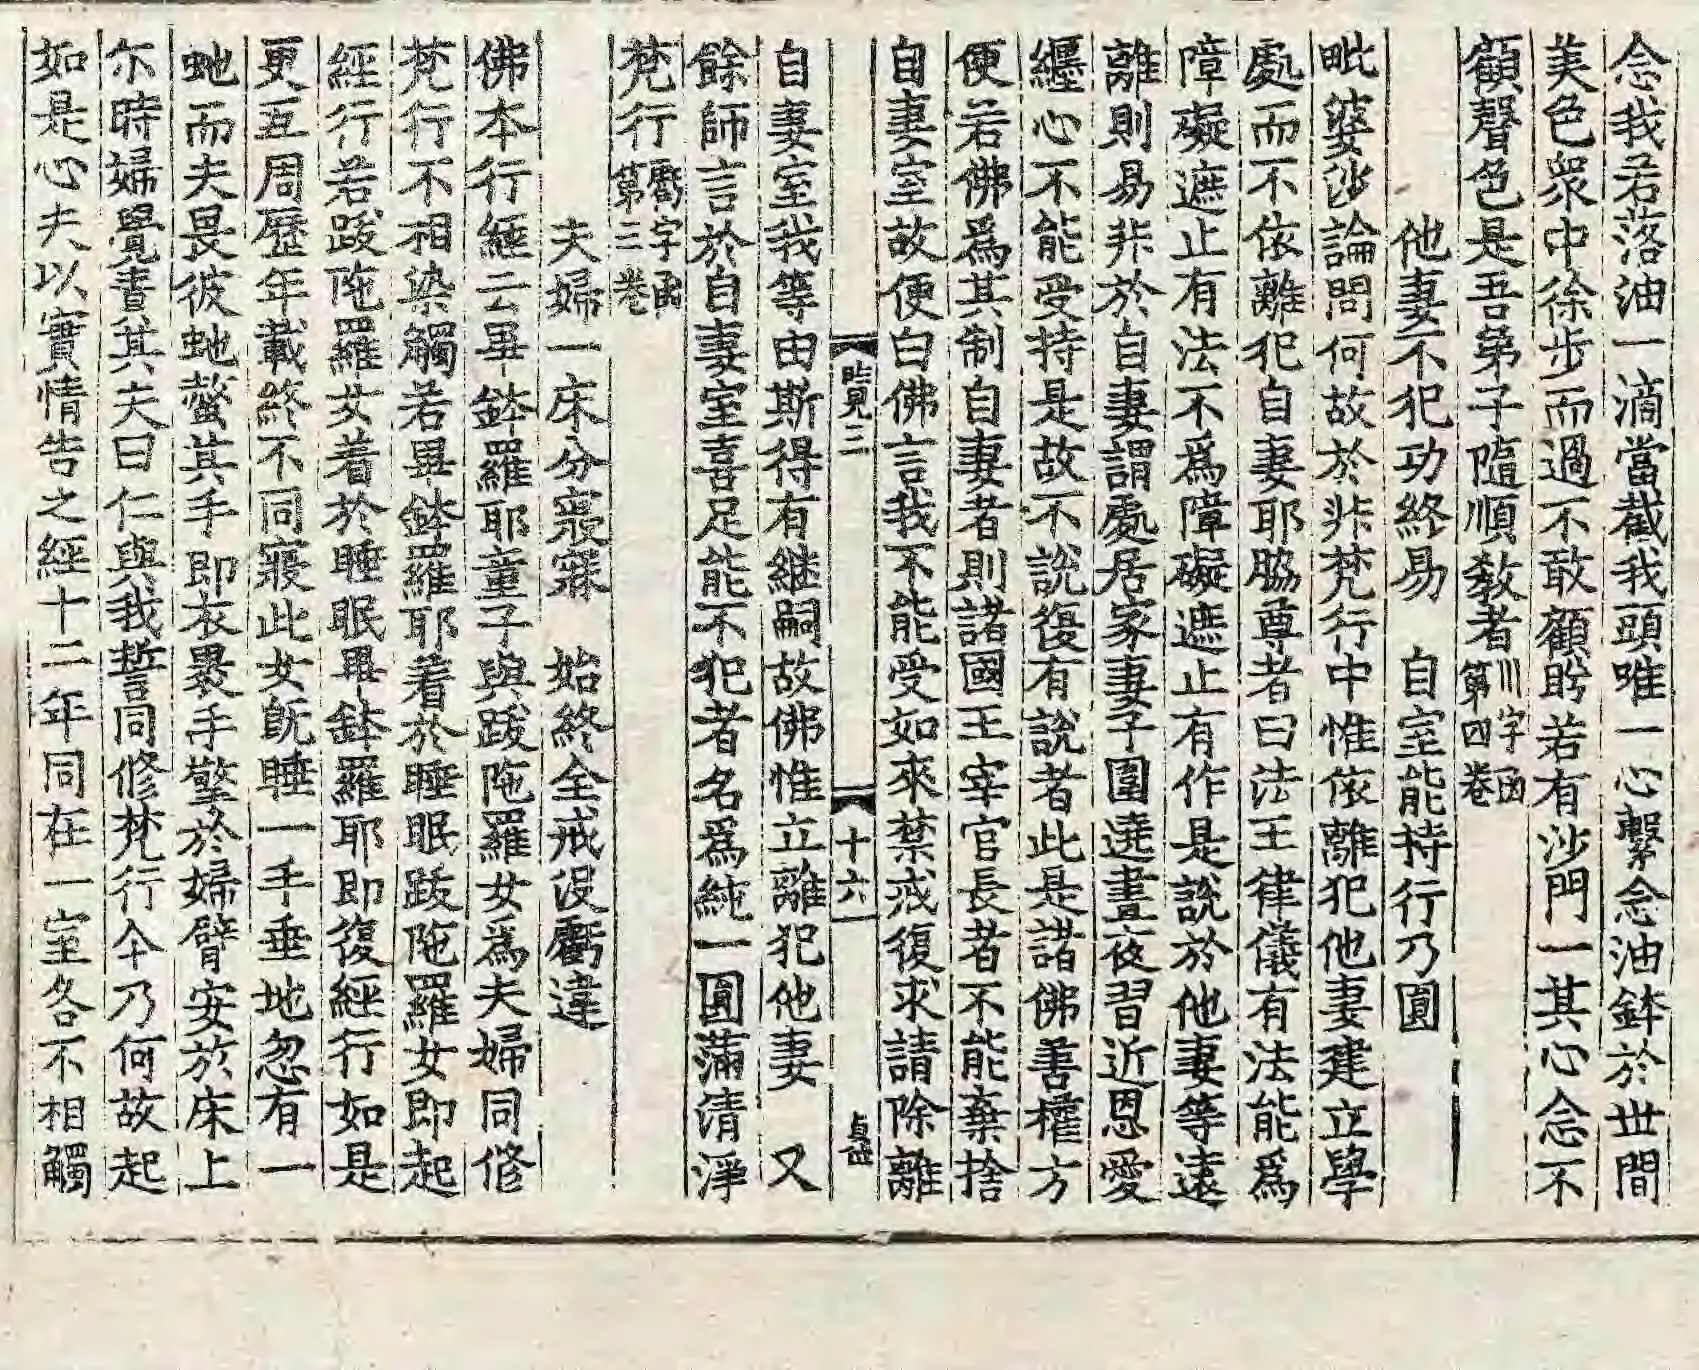 念我若落油一滴當截我頭唯一心繫念油鉢於世間
美色衆中徐步而過不敢顧眄若有沙門一其心念不
顧聲色是吾弟子隨順教者川字函第四卷
他妻不犯功終易　自室能持行乃圓
毗婆沙論問何故於非梵行中惟依離犯他妻建立學
處而不依離犯自妻耶脇尊者曰法王律儀有法能爲
障礙遮止有法不爲障礙遮止有作是說於他妻等遠
離則易非於自妻謂處居家妻子圍遶晝夜習近恩愛
纏心不能受持是故不說復有說者此是諸佛善權方
便若佛爲其制自妻者則諸國王宰官長者不能棄捨
自妻室故便白佛言我不能受如來禁戒復求請除離
晗見三　十六
自妻室我等由斯得有継嗣故佛惟立離犯他妻　又
餘師言於自妻室喜足能不犯者名爲純一圓滿清淨
梵行㢤字函第三卷
夫婦一床分寢寐　始終全戒没虧違
佛本行經云畢鉢羅耶童子與跋陁羅女爲夫婦同修
梵行不相染觸若畢鉢羅耶着於睡眠跋陁羅女即起
經行若跋陁羅女着於睡眠畢鉢羅耶即復經行如是
更互周歷年載終不同寢此女既睡一手垂地忽有一
虵而夫畏彼虵螫其手即衣褁手擎於婦臂安於床上
尒時婦覺責其夫曰仁與我誓同修梵行今乃何故起
如是心夫以實情告之經十二年同在一室各不相觸